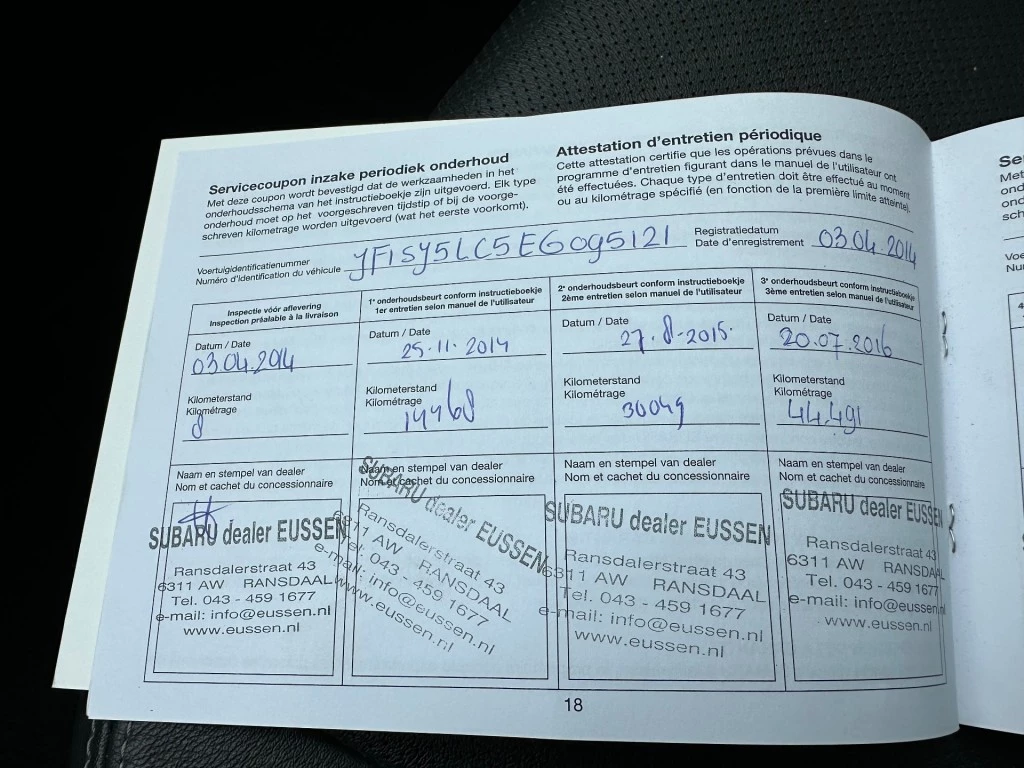 Servicecoupon inzake periodiek onderhoud
Met deze coupon wordt bevestigd dat de werkzaamheden in het
onderhoudsschema van het instructieboekje zijn uitgevoerd. Elk type
onderhoud moet op het voorgeschreven tijdstip of bij de voorge-
schreven kilometrage worden uitgevoerd (wat het eerste voorkomt).
Attestation d'entretien périodique
Cette attestation certifie que les opérations prévues dans le
programme d'entretien figurant dans le manuel de l'utilisateur ont
été effectuées. Chaque type d'entretien doit être effectué au moment
ou au kilométrage spécifié (en fonction de la première limite atteinte).
Voertuigidentificatienummer
Numéro d'identification du véhicule
JF1SJ5LC5EG095121
Registratiedatum
Date d'enregistrement
03.04.2014
Inspectie vóór aflevering
Inspection préalable à la livraison
Datum / Date
03.04.2014
Kilometerstand
Kilométrage
8
Naam en stempel van dealer
Nom et cachet du concessionnaire
SUBARU dealer EUSSEN
Ransdalerstraat 43
6311 AW RANSDAAL
Tel. 043 - 459 1677
e-mail: info@eussen.nl
www.eussen.nl
1e onderhoudsbeurt conform instructieboekje
1er entretien selon manuel de l'utilisateur
Datum / Date
25.11.2014
Kilometerstand
Kilométrage
14468
Naam en stempel van dealer
Nom et cachet du concessionnaire
SUBARU dealer EUSSEN
Ransdalerstraat 43
6311 AW RANSDAAL
Tel. 043 - 459 1677
e-mail: info@eussen.nl
www.eussen.nl
2e onderhoudsbeurt conform instructieboekje
2ème entretien selon manuel de l'utilisateur
Datum / Date
27.8.2015.
Kilometerstand
Kilométrage
30049
Naam en stempel van dealer
Nom et cachet du concessionnaire
SUBARU dealer EUSSEN
Ransdalerstraat 43
6311 AW RANSDAAL
Tel. 043 - 459 1677
e-mail: info@eussen.nl
www.eussen.nl
3e onderhoudsbeurt conform instructieboekje
3ème entretien selon manuel de l'utilisateur
Datum / Date
20.07.2016
Kilometerstand
Kilométrage
44.491
Naam en stempel van dealer
Nom et cachet du concessionnaire
SUBARU dealer EUSSEN
Ransdalerstraat 43
6311 AW RANSDAAL
Tel. 043 - 459 1677
e-mail: info@eussen.nl
www.eussen.nl
18